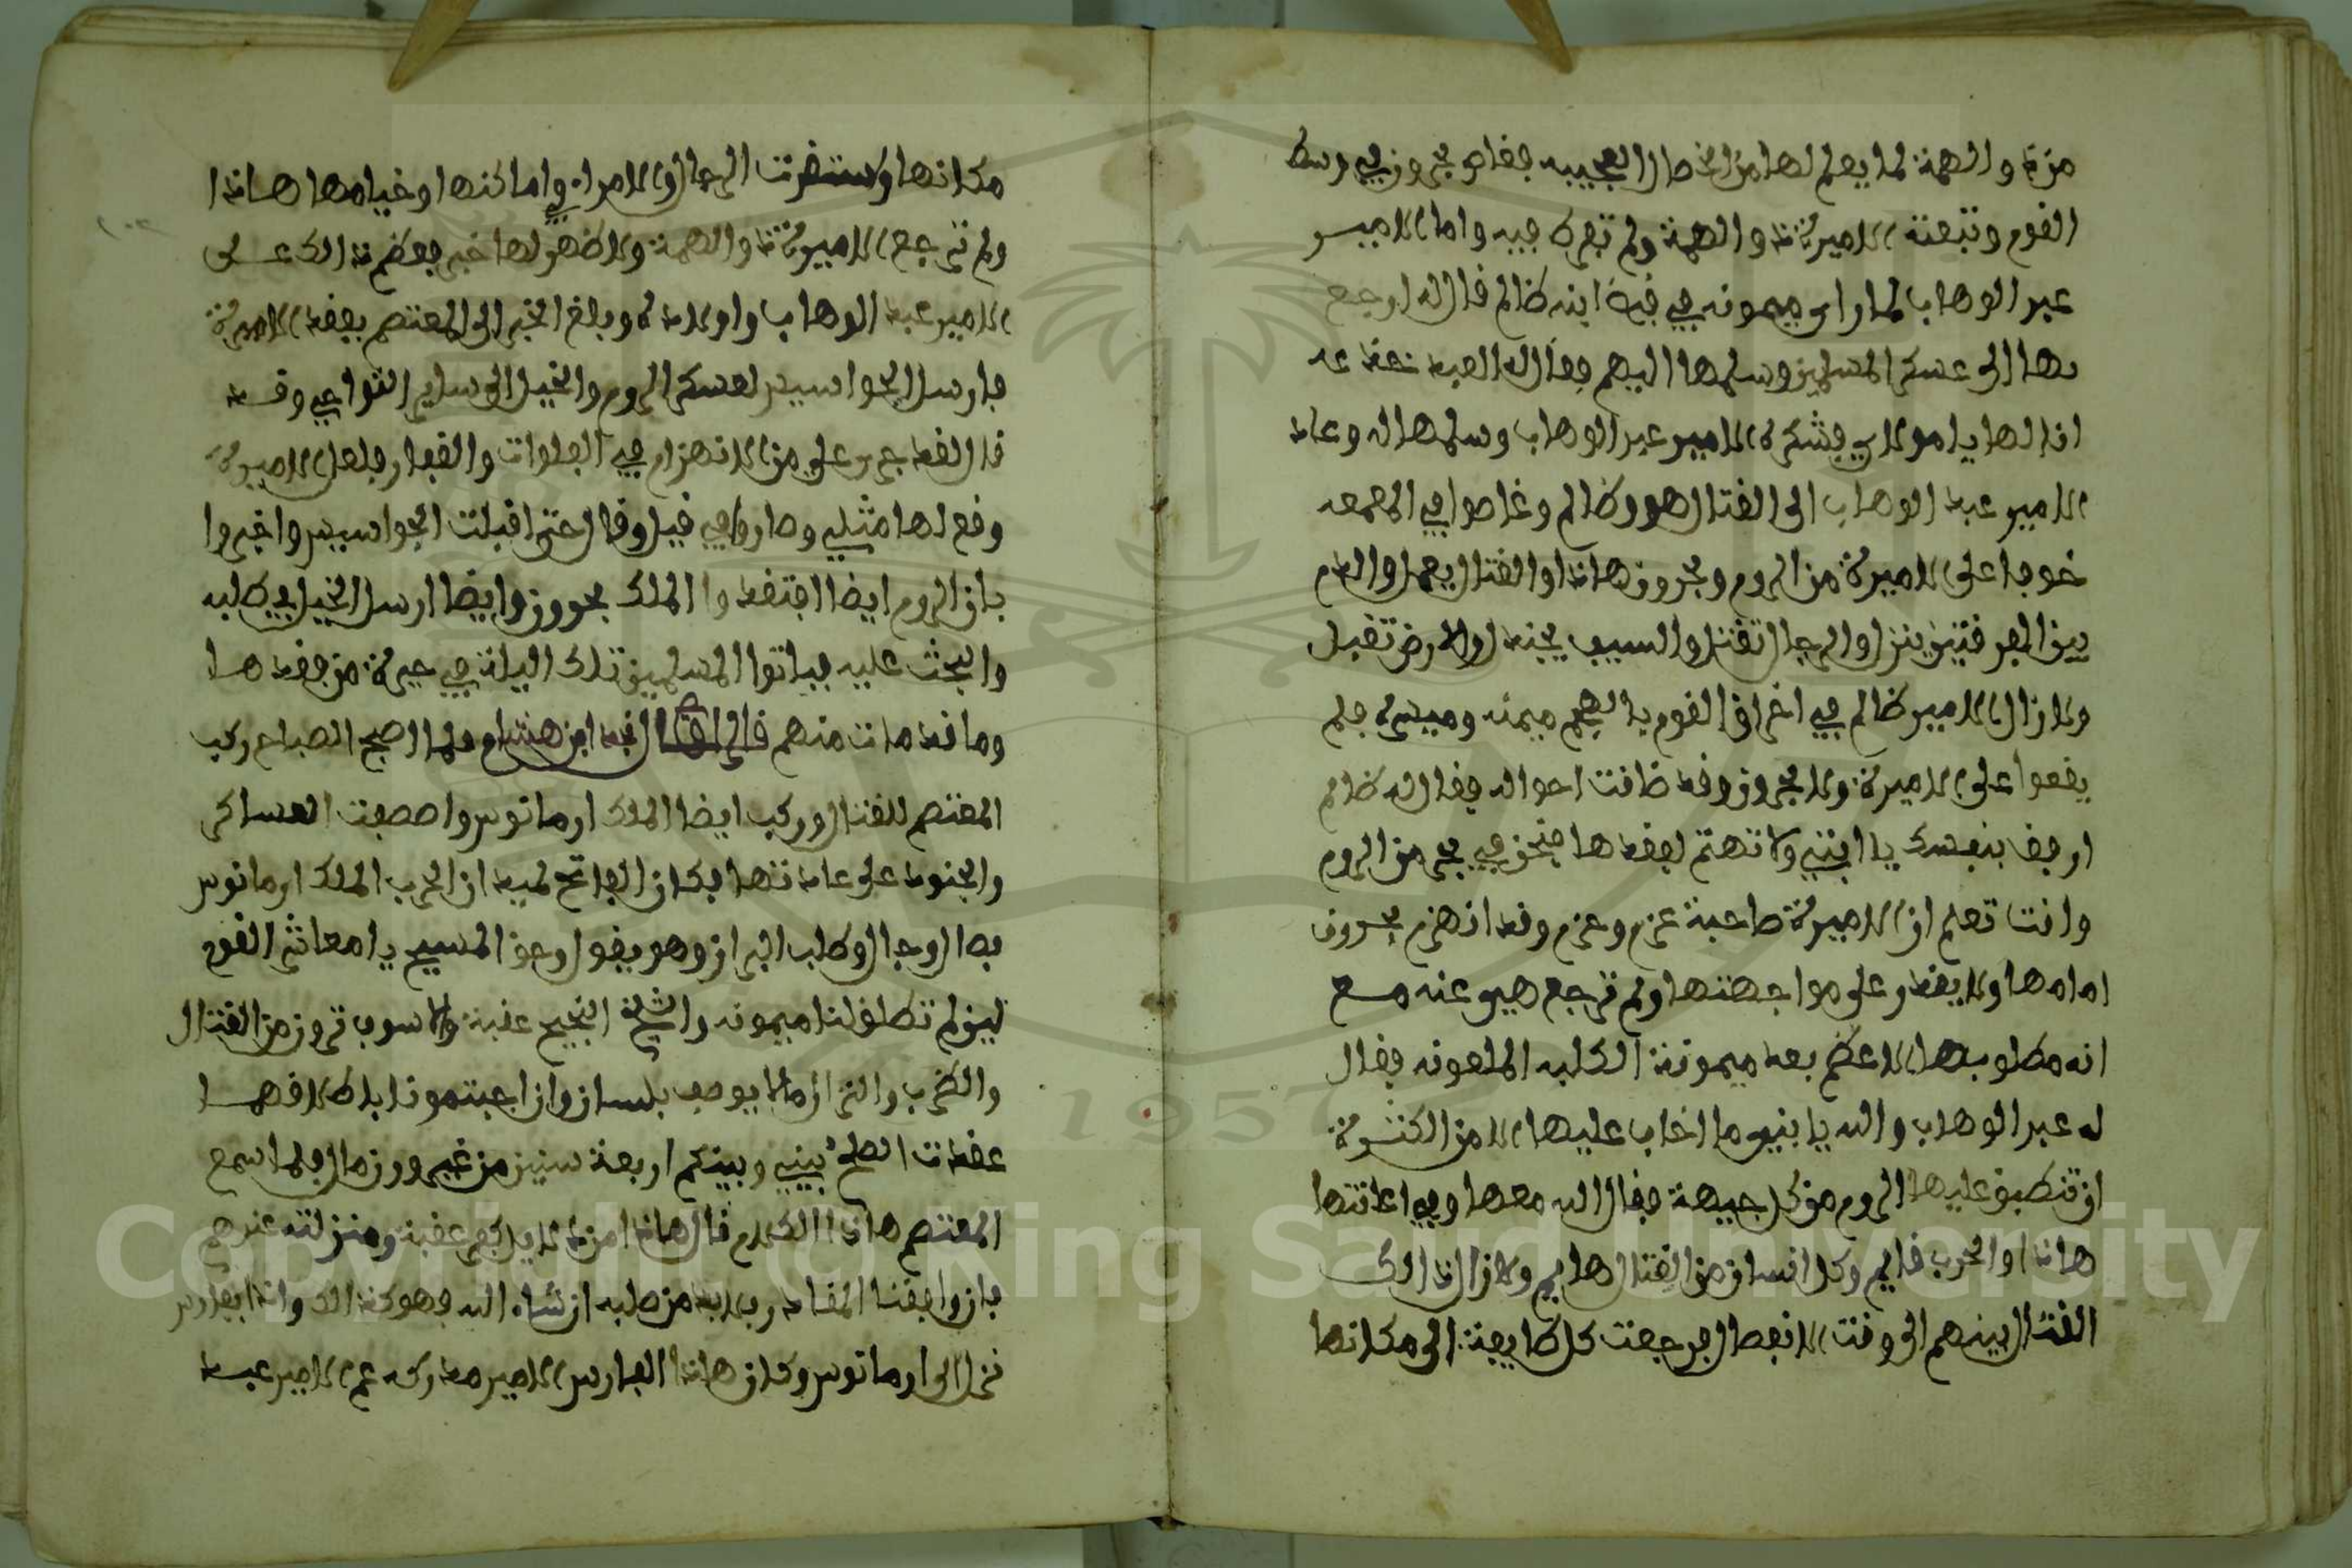 من ذا والهمة لما يعلم لها من الخصال العجيبه فغاص بحرون في وسط
القوم وتبعته الاميرة ذا والهمة ولم تفكر فيه واما الامير
عبد الوهاب لما راى ميمونه في قبضة ابنه ظالم قال له ارجع
بها الى عسكر المسلمين وسلمها اليهم فقال له العبد نعند عد
انا لها يا مولاي فشكره الامير عبد الوهاب وسلمها له وعاد
الامير عبد الوهاب الى القتال هو وظالم وغاصوا في المعمعه
خوفا على الاميرة من الروم وبحرون هاذا والقتال يعمل والدم
بين الفرقتين ينزل والرجال تقتل والسيف يجندل والارض تقبل
ولا زال الامير ظالم في اخراق القوم يلاطهم ميمنه وميسره فلم
يقعوا على الاميرة ولا بحرون وقد ضاقت احواله فقال له ظالم
ارفق بنفسك يا ابتي ولا تهتم لفقدها فنحن في بحر من الروم
وانت تعلم ان الاميرة صاحبة عزم وحزم وقد انهزم بحرون
امامها ولا يقدر على مواجهتها ولم ترجع هي عنه مع
انه مطلوبها الاعظم بعد ميمونة الكلبه الملعونه فقال
له عبد الوهاب والله يا بني ما اخاف عليها الا من الكثرة
ان تنطبق عليها الروم من كل جيهة فقال الله معها وفي اعانتها
هاذا والحرب قايم وكل انسان من القتال هايم ولا زال ذالك
القتال بينهم الى وقت الانفصال فرجعت كل طايفة الى مكانها
مكانها واستقرت الرجال والامراء في اماكنها وخيامها هاذا
ولم ترجع الاميرة ذا والهمة ولا ظهر لها خبر فعظم ذالك على
الامير عبد الوهاب واولاده وبلغ الخبر الى المعتصم بفقد الاميرة
فارسل الجواسيس لعسكر الروم والخيل الى ساير النواحي وقد
قال لقد جرى على من الانهزام في الفلوات والقفار فلعل الاميرة
وقع لها مثلي وصاروا في قيل وقال حتى اقبلت الجواسيس واخبروا
بان الروم ايضا افتقدوا الملك بحرون وايضا ارسل الخيل في طلبه
والبحث عليه فباتوا المسلمين تلك اليلة في حيرة من فقدها
وما قد مات منهم قال نجد ابن هشام فلما اصبح الصباح ركب
المعتصم للقتال وركب ايضا الملك ارمانوس واصطفت العساكر
والجنود على عادتها فكان الفاتح لميدان الحرب الملك ارمانوس
فصال وجال وطلب البراز وهو يقول وحق المسيح يا معاشر القوم
لين لم تطلقوا لنا ميمونه والشيخ النجيح عقبة والا سوف ترون من القتال
والضرب والنزال ما لا يوصف بلسان وان اعيتمونا بلاطلاقهما
عقدت الصلح بيني وبينكم اربعة سنين من غير ورزمال فلما سمع
المعتصم هاذا الكلام قال هاذا امر لا يدركه عقبة ومنزلته عندهم
فان وافقنا المقادير فلا بد من صلبه ان شاء الله فهو كذالك واذا بفارس
نزل الى ارمانوس وكان هاذا الفارس الامير معاركه عم الامير عبد